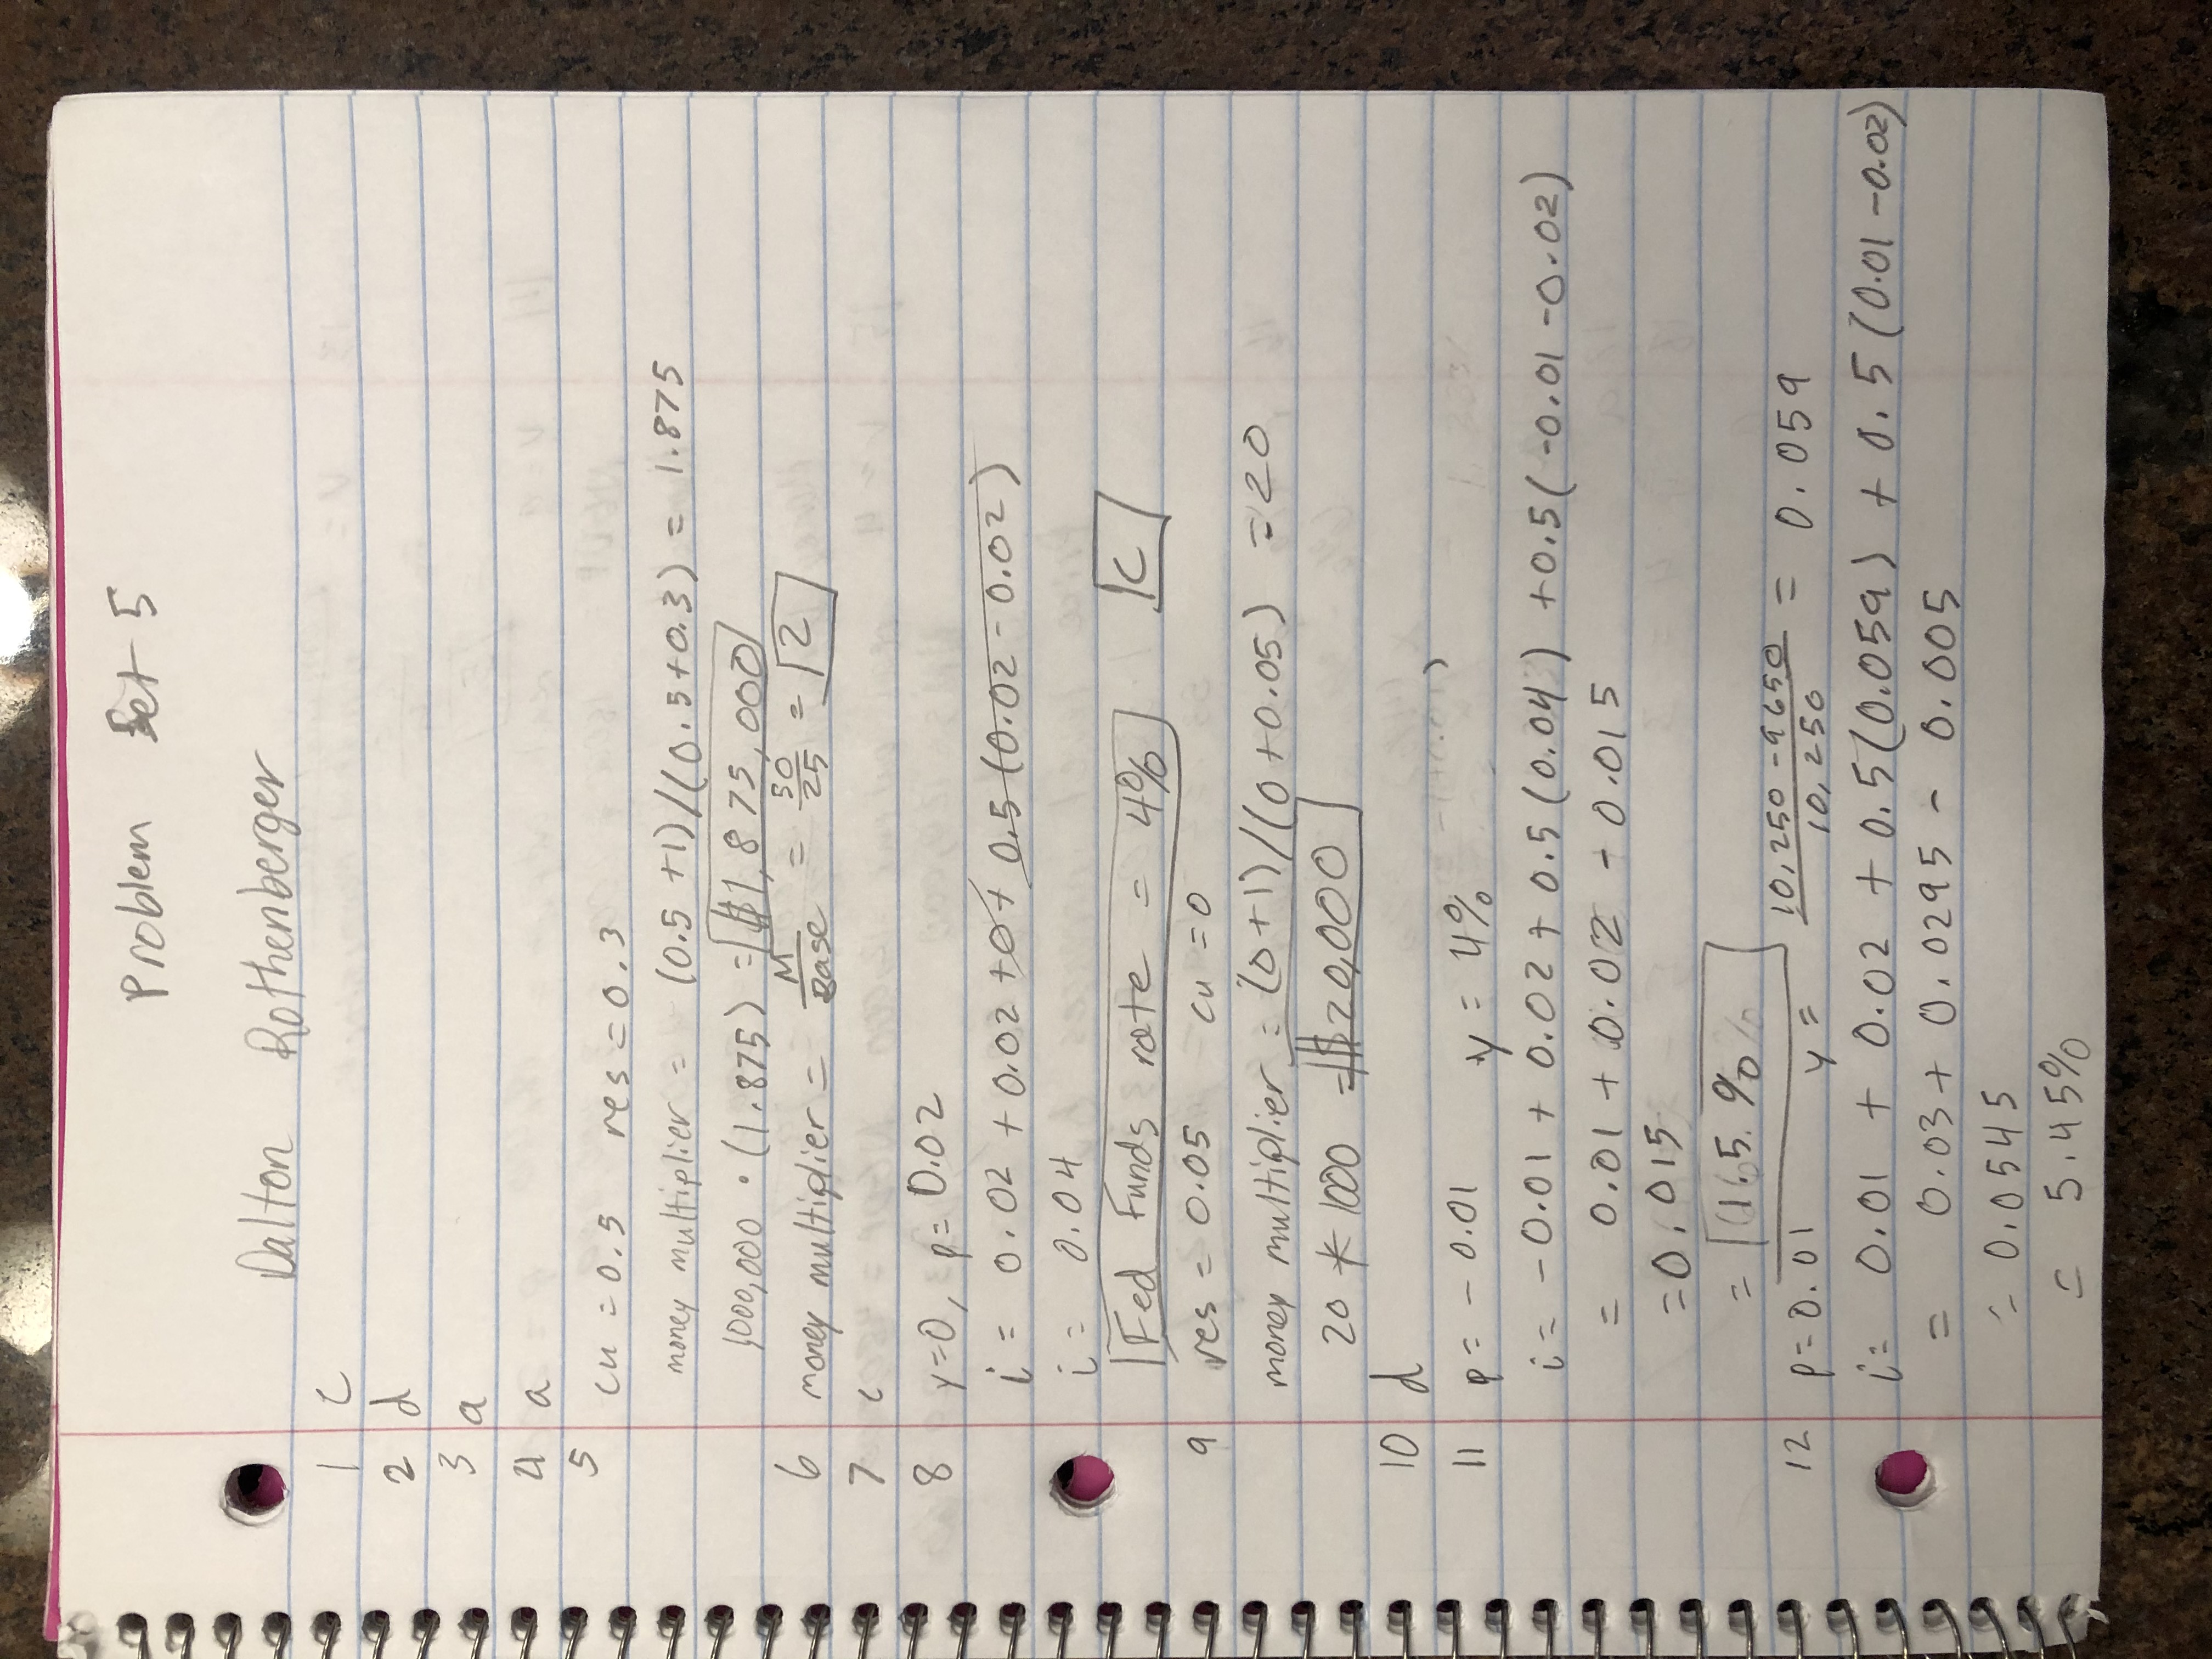 Problem Set 5
Dalton Rothenberger
1 c
2 d
3 a
4 a
5
cu = 0.5 res = 0.3
money multiplier = (0.5 +1)/(0.5+0.3) = 1.875
1000,000 · (1.875) = $1,875,000
6 money multiplier = M/Base = 50/25 = 2
7 c
8 y=0, p= 0.02
i = 0.02 + 0.02 + 0 + 0.5 (0.02 - 0.02)
i = 0.04
Fed Funds rate = 4% C
9 res = 0.05 cu = 0
money multiplier = (0+1)/(0+0.05) = 20
20 * 1000 = $20,000
10 d
11 p = - 0.01 y = 4%
i = -0.01 + 0.02 + 0.5 (0.04) + 0.5 ( -0.01 - 0.02)
= 0.01 + 0.02 - 0.015
= 0.015
= 1.5 %
12 p = 0.01 y = 10,250 - 9650 / 10,250 = 0.059
i = 0.01 + 0.02 + 0.5 (0.059) + 0.5 (0.01 - 0.02)
= 0.03 + 0.0295 - 0.005
= 0.0545
= 5.45%